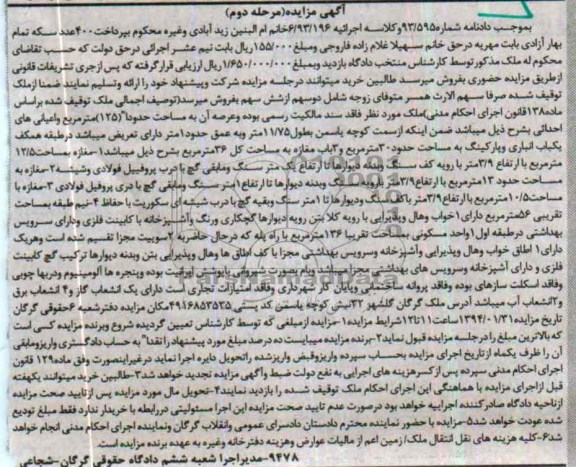 آگهی مزایده(مرحله دوم)
بموجب دادنامه شماره۹۳/۵۹۵وکلاسه اجرائیه ۶/۹۳/۱۹۶خانم ام البنین زید آبادی وغیره محکوم بپرداخت۴۰۰عدد سکه تمام
بهار آزادی بابت مهریه درحق خانم سهیلا غلام زاده فاروجی ومبلغ۱۵۵/۰۰۰ریال بابت نیم عشر اجرائی درحق دولت که حسب تقاضای
محکوم له ملک مذکور توسط کارشناس منتخب دادگاه بازدید وبمبلغ۱/۶۵۰/۰۰۰/۰۰۰ریال ارزیابی قرار گرفته که پس از جری تشریفات قانونی
ازطریق مزایده حضوری بفروش میرسد طالبین خرید میتوانند درجلسه مزایده شرکت وپیشنهاد خود را ارائه وتسلیم نمایند ضمنا ازملک
توقیف شده صرفا سهم الارث همسر متوفای زوجه شامل دوسهم ازشش سهم بفروش میرسد(توصیف اجمالی ملک توقیف شده براساس
ماده۱۳۸قانون اجرای احکام مدنی)ملک مورد نظر فاقد سند مالکیت رسمی بوده وعرصه آن به مساحت حدودا"(۱۲۵)مترمربع واعیانی های
احداثی بشرح ذیل میباشد ضمن اینکه ازسمت کوچه یاسمن بطول۱۱/۷۵متر وبه عمق حدود۱متر دارای تعریض میباشد درطبقه همکف
یکباب انباری وپارکینگ به مساحت حدود۳۰مترمربع و۳باب مغازه به مساحت کل ۳۶مترمربع بشرح ذیل میباشد۱-مغازه بمساحت۱۲/۵
مترمربع با ارتفاع ۳/۹متر با رویه کف سنگ وبدنه دیوارها تا ارتفاع یک متر سنگ ومابقی گچ با درب پروفیل فولادی وشیشه۲-مغازه به
مساحت حدود ۱۳مترمربع با ارتفاع۳/۹متر بارویه سنگ وبدنه دیوارها تا ارتفاع۱متر سنگ ومابقی گچ با دری پروفیل فولادی ۳-مغازه با
مساحت۱۰/۵مترمربع با ارتفاع ۳/۹متر باکف سنگ ودیوارها تا ۱متر سنگ وبقیه گچ با درب شیشه ای سکوریت با حفاظ ۴-نیم طبقه بمساحت
تقریبی ۵۶مترمربع دارای ۱خواب وهال وپذیرایی با رویه کلا بتن رویه دیوارها گچکاری ورنگ وآشپزخانه با کابینت فلزی ودارای سرویس
بهداشتی درطبقه اول۱واحد مسکونی بمساحت تقریبا ۱۳۶مترمربع با راه پله که درحال حاضربه ۲سوییت مجزا تقسیم شده است وهریک
دارای۱ اطاق خواب وهال وپذیرایی وآشپزخانه وسرویس بهداشتی مجزا با کف اطاق ها وهال وپذیرایی بتن وبدنه دیوارها ترکیب گچ کابینت
فلزی و دارای آشپزخانه وسرویس های بهداشتی مجزا میباشد وبام بصورت شیروانی باپوشش ایرانیت بوده وپنجره ها آلومینیوم ودربها چوبی
وفاقد اسکلت سازهای بوده وفاقد پروانه ساختمانی وپایان کار شهرداری وفاقد امتیازات تجاری است دارای یک انشعاب گاز و۴ انشعاب برق
و۲انشعاب آب میباشد آدرس ملک گرگان گلشهر ۳۲نبش کوچه یاسمن کد پستی ۴۹۱۶۸۵۳۵۳۵مکان مزایده دفترشعبه ۶حقوقی گرگان
تاریخ مزایده۱۳۹۴/۰۱/۳۱ساعت۱۱تا۱۲شرایط مزایده۱-مزایده ازمبلغی که توسط کارشناس تعیین گردیده شروع وبرنده مزایده کسی است
که بالاترین مبلغ را درجلسه مزایده قبول نماید۲-برنده مزایده میبایست ده درصد مبلغ مورد پیشنهاد را نقدا" به حساب دادگستری واریزومابقی
آن را ظرف یکماه ازتاریخ اجرای مزایده بحساب سپرده واریزوقبض واریزشده راتحویل دایره اجرا نماید درغیراینصورت وفق ماده۱۲۹ قانون
اجرای احکام مدنی سپرده پس ازکسرهزینه های اجرایی به نفع دولت ضبط وآگهی مزایده تجدید خواهد شد۳-طالبین خرید میتوانند یکهفته
قبل ازاجرای مزایده با هماهنگی این اجرای احکام ملک توقیف شده را بازدید نمایند۴-تحویل مال مورد مزایده پس ازتایید صحت مزایده
ازناحیه دادگاه صادرکننده اجراییه خواهد بود درصورت عدم تایید صحت مزایده این اجرا مسئولیتی دررابطه با خریدار ندارد فقط مبلغ تودیع
شده عودت خواهد شد۵-مزایده با حضور نماینده محترم دادستان دادسرای عمومی وانقلاب گرگان ونماینده اجرای احکام مدنی انجام خواهد
شد۶-کلیه هزینه های نقل انتقال ملک/زمین اعم از مالیات عوارض وهزینه دفترخانه وغیره به عهده برنده مزایده است.
۹۴۷۸-مدیراجرا شعبه ششم دادگاه حقوقی گرگان-شجاعی